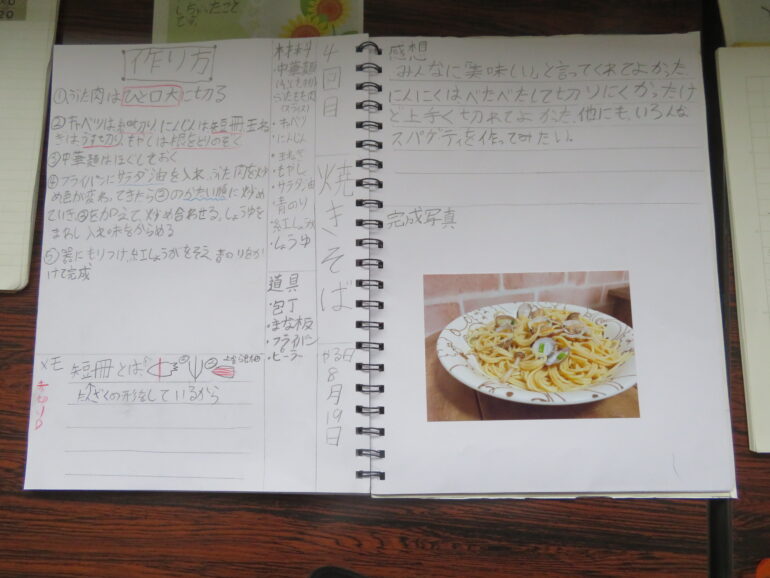 しちゃいたこと
です。
作り方
①ぶた肉はひと口大に切る
②キャベツは細切り、にんじんは短冊、玉ね
ぎはうす切り、もやしは根をとりのぞく
③中華麺はほぐしておく
④フライパンにサラダ油を入れ、ぶた肉を炒
め色が変わってきたら②のかたい順に炒め
ていき③を加えて、炒め合わせる。しょうゆを
まわし入れ味をからめる
⑤器にもりつけ、紅しょうがをそえ、青のりをか
けて完成
メモ
短冊とは
たんざくの形をしているから
材料
・中華麺
・ぶたもも肉
(スライス)
・キャベツ
・にんじん
・玉ねぎ
・もやし
・サラダ油
・青のり
・紅しょうが
・しょうゆ
道具
・包丁
・まな板
・フライパン
・ピーラー
4回目
焼きそば
やる日
8月19日
感想
みんなに「美味しい」と言ってくれてよかった。
にんにくはべたべたして切りにくかったけ
ど上手く切れてよかった。他にも、いろんな
スパゲティを作ってみたい。
完成写真